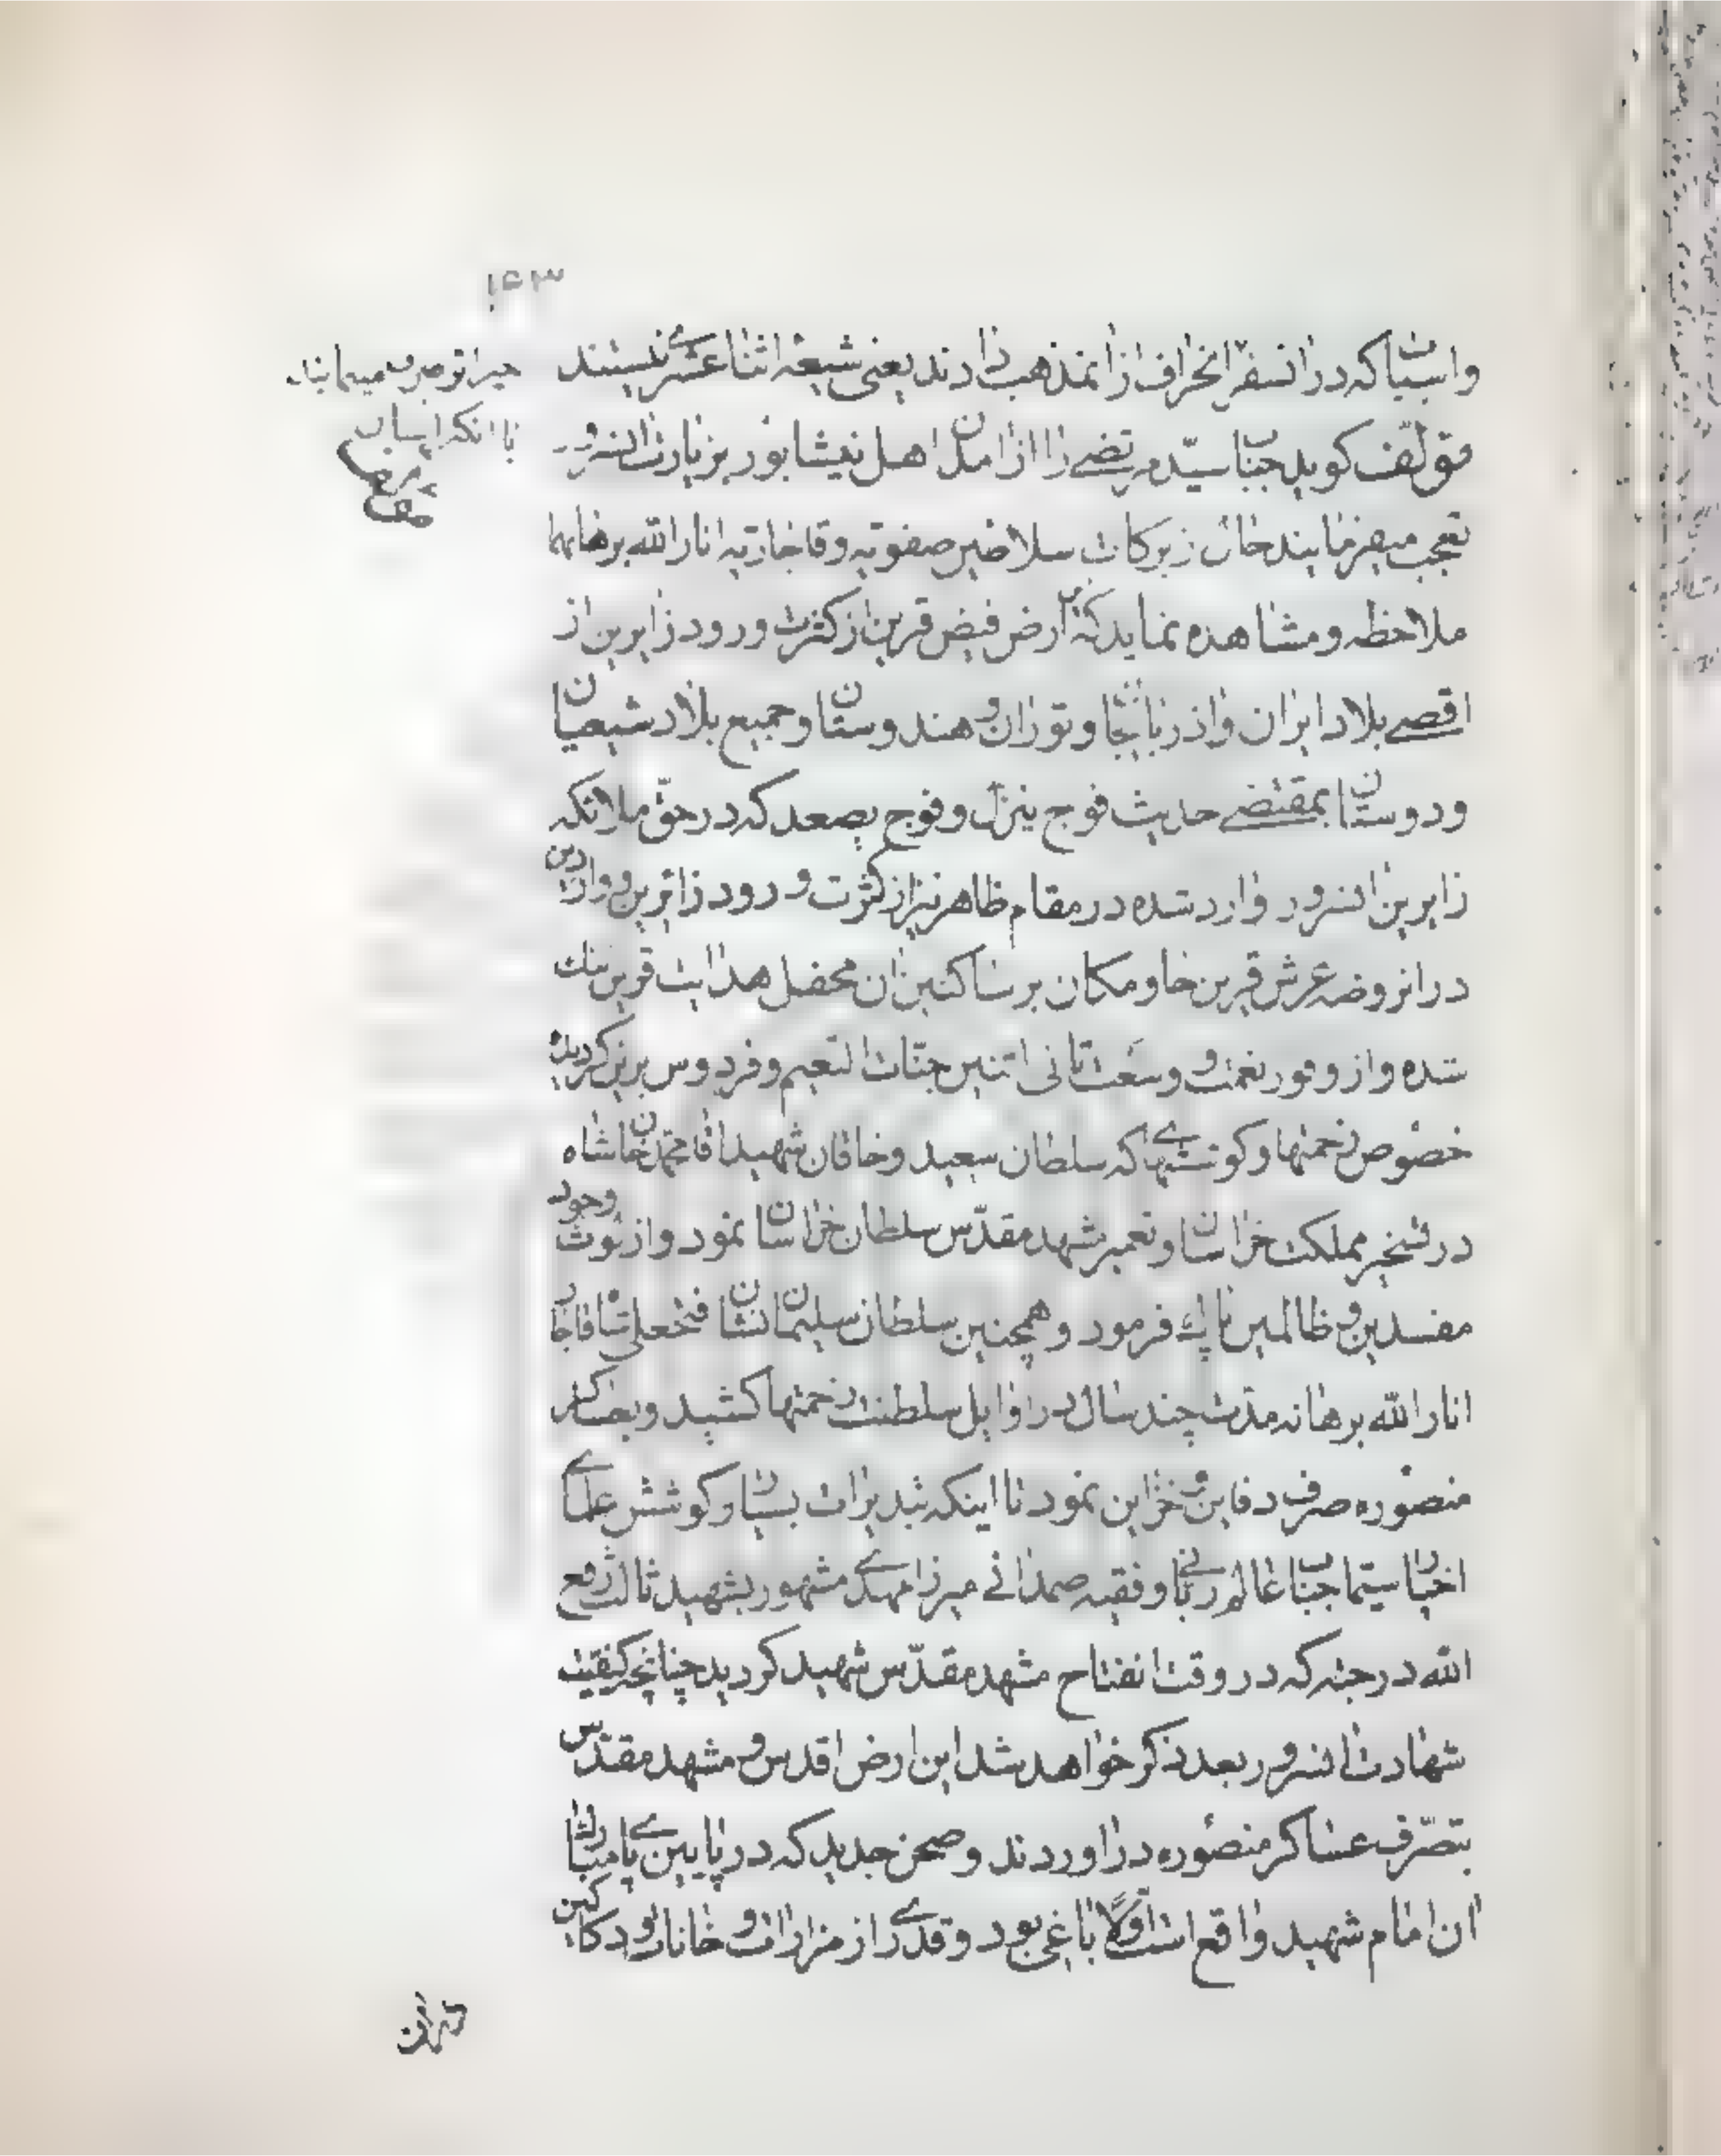 ۱۶۳
واسبابیکه در انسفر انحراف از انمذهب دارند یعنی شیعه اثنا عشری نیستند
مؤلف کوید جناب سید مرتضی را از امدن اهل نیشابور بزیارت انسرور
تعجب میفرمایند حال از برکات سلاطین صفویه و قاجاریه انار الله برهانهما
ملاحظه و مشاهده نماید که آن ارض فیض قرین از کثرت ورود زایرین از
اقصی بلاد ایران و اذربایجان و توران و هندوستان و جمیع بلاد شیعیان
و دوستان بمقتضی حدیث فوج ینزل و فوج یصعد که در حق ملائکه
زایرین انسرور وارد شده در مقام ظاهر نیز از کثرت ورود زائرین و واردین
در انروضه عرش قرین جا و مکان بر ساکنین ان محفل هدایت قرین تنک
شده و از وفور نعمت و وسعت ثانی اثنین جنات النعیم و فردوس برین کردیده
خصوص زحمتها و کوششهائیکه سلطان سعید و خاقان شهید اقا محمد خان شاه
در تسخیر مملکت خراسان و تعمیر شهد مقدس سلطان خراسان نمود و از لوث وجود
مفسدین و ظالمین پاک فرمود و همچنین سلطان سلیمان نشان فتحعلی شاه قاجار
انار الله برهانه مدت چند سال در اوایل سلطنت زحمتها کشید و بعساکر
منصوره صرف دفاین و خزاین نمود تا اینکه بتدبیرات بسیار و کوشش علمای
اخیار سیما جناب عالم ربانی و فقیه صمدانی میرزا مهدی مشهور بشهید ثالث رفع
الله درجته که در وقت انفتاح مشهد مقدس شهید کردید چنانچه کیفیت
شهادت انسرور بعد ذکر خواهد شد این ارض اقدس و مشهد مقدس
بتصرف عساکر منصوره در اوردند و صحن جدید که در پایین پای مبارک
ان امام شهید واقع است اولا باغی بود و قدری از مزارات و خانات و دکاکین